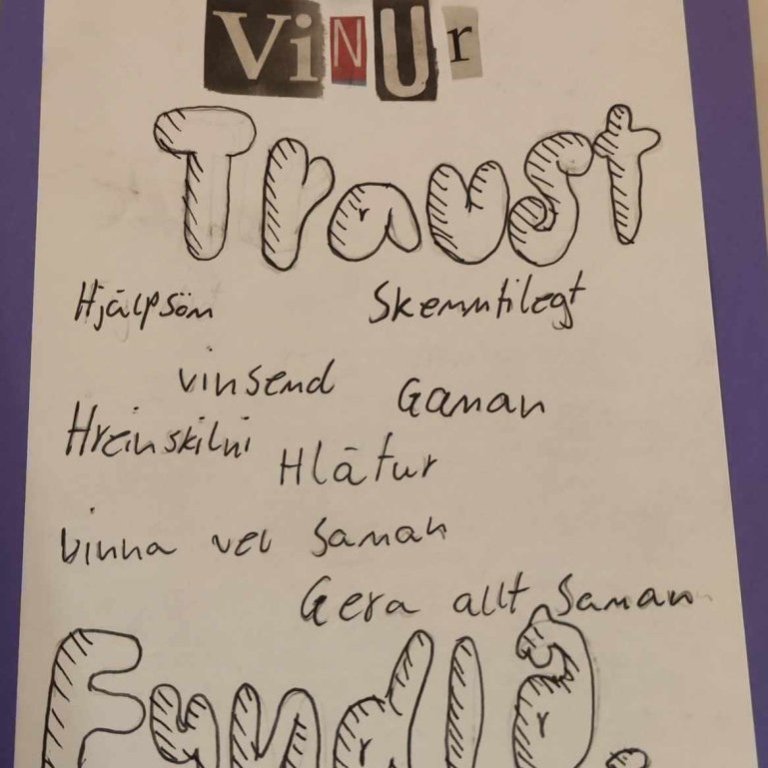 ViNUr
Traust
Hjálpsöm Skemmtilegt
vinsemd Gaman
Hreinskilni
Hlátur
vinna vel saman
Gera allt saman